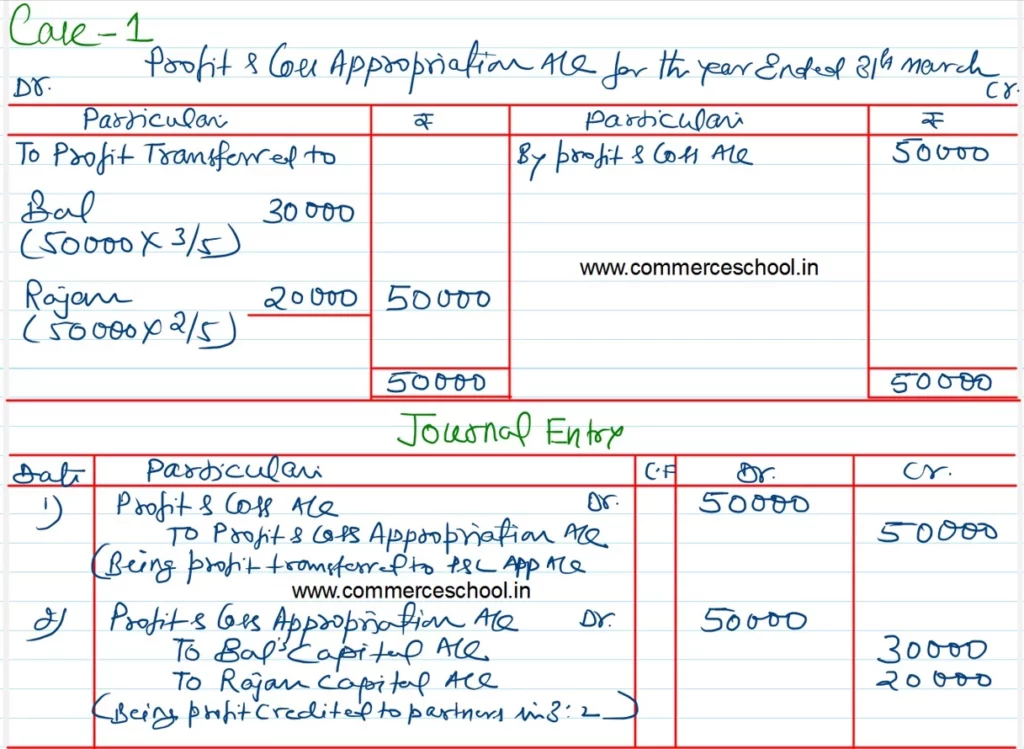 Case - 1
Profit & Loss Appropriation A/c for the year Ended 31th march
Dr. Cr.
Particulars ₹ Particulars ₹
To Profit Transferred to By profit & Loss A/c 50000
Bal 30000
(50000 X 3/5)
www.commerceschool.in
Rajan 20000 50000
(50000 X 2/5)
50000 50000
Journal Entry
Date Particulars L.F Dr. Cr.
1) Profit & Loss A/c Dr. 50000
To Profit & Loss Appropriation A/c 50000
(Being profit transferred to P&L APP A/c
www.commerceschool.in
2) Profit & Loss Appropriation A/c Dr. 50000
To Bal's Capital A/c 30000
To Rajan Capital A/c 20000
(Being profit credited to partners in 3:2)